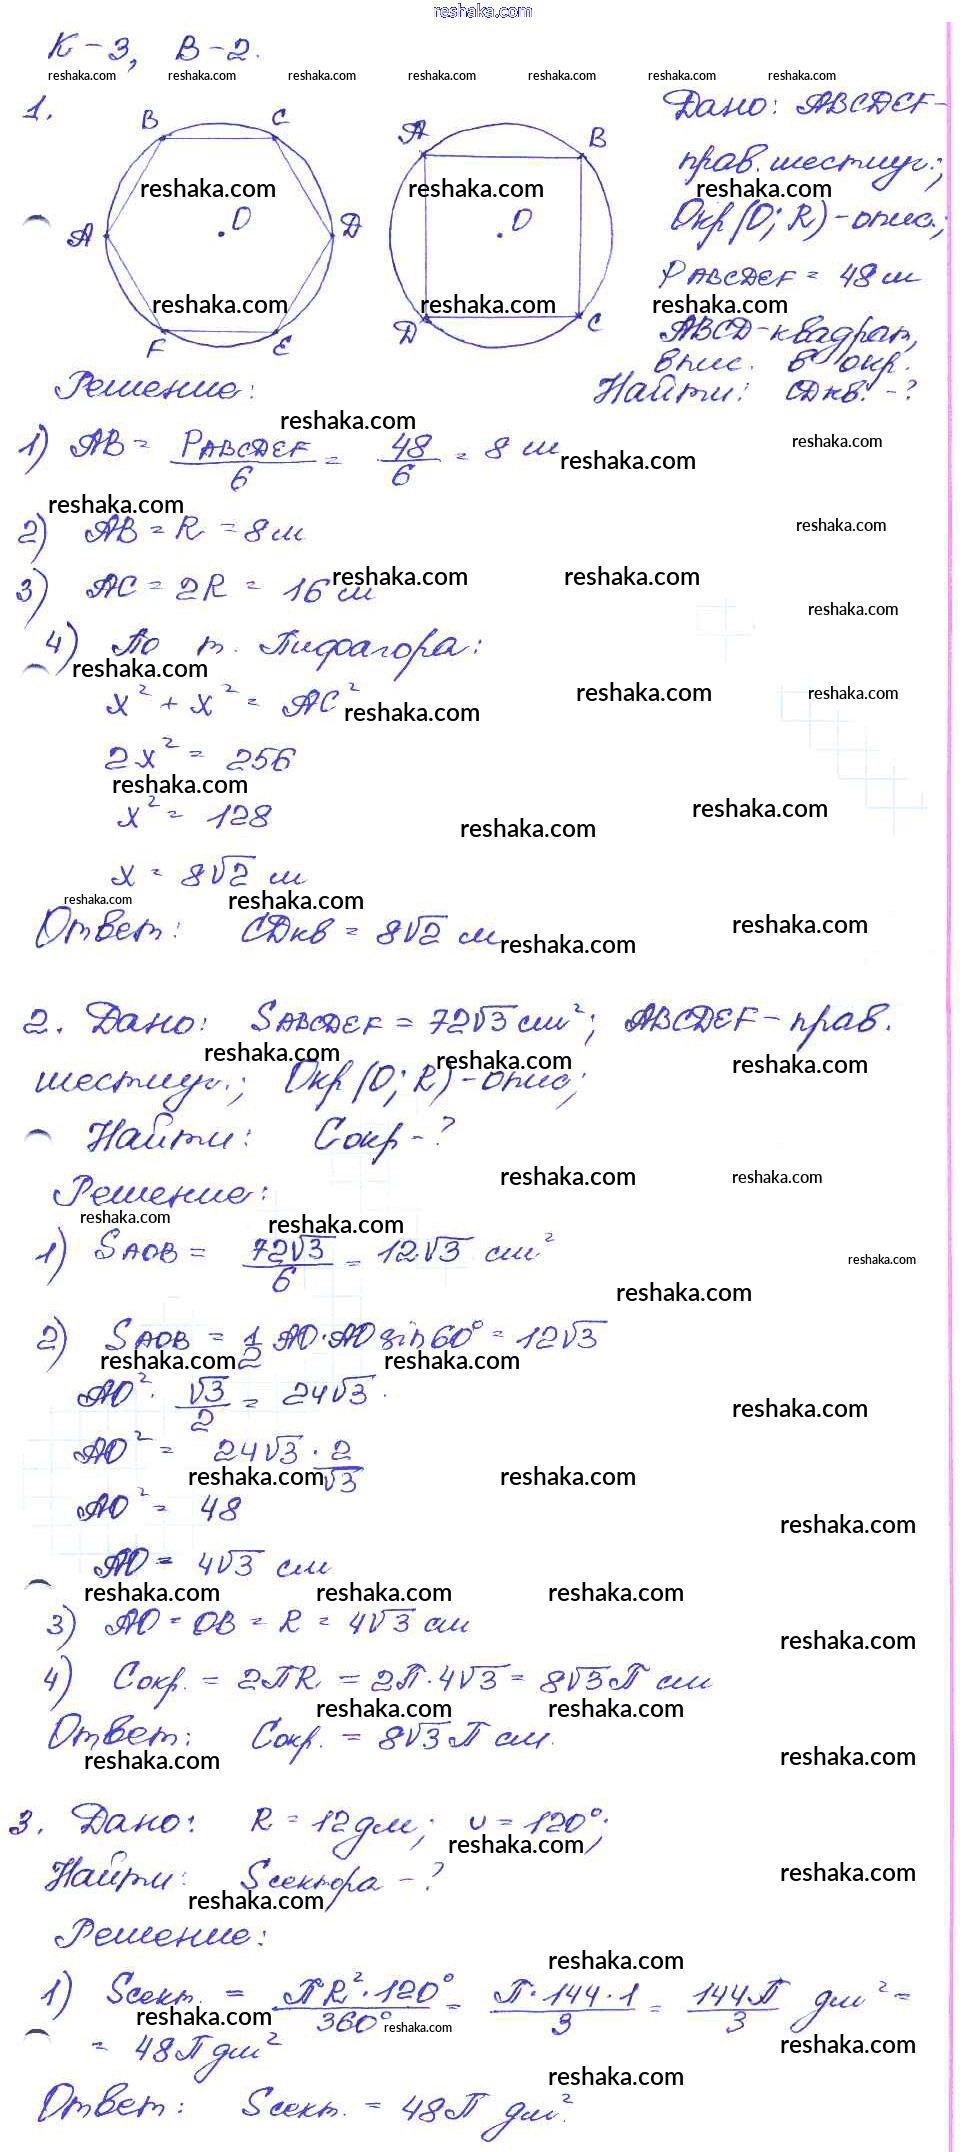 reshaka.com
К-3, В-2.
reshaka.com reshaka.com reshaka.com reshaka.com reshaka.com reshaka.com reshaka.com
1.
B C
A D
F E
O
A B
D C
O
Дано: ABCDEF-
прав. шестиуг.;
Окр(O; R)-опис.;
P ABCDEF = 48 м
ABCD-квадрат,
впис. в окр.
Найти: CDкв. -?
reshaka.com reshaka.com reshaka.com
reshaka.com reshaka.com reshaka.com
Решение:
reshaka.com
1) AB = P ABCDEF / 6 = 48 / 6 = 8 м
reshaka.com reshaka.com
reshaka.com
2) AB = R = 8 м
reshaka.com
3) AC = 2R = 16 м
reshaka.com reshaka.com
reshaka.com
4) По т. Пифагора:
reshaka.com
x² + x² = AC²
reshaka.com reshaka.com reshaka.com
2x² = 256
reshaka.com
x² = 128
reshaka.com reshaka.com
x = 8√2 м
reshaka.com reshaka.com
Ответ: CDкв = 8√2 м
reshaka.com reshaka.com
2. Дано: S ABCDEF = 72√3 см²; ABCDEF-прав.
reshaka.com reshaka.com reshaka.com
шестиуг.; Окр(O; R)-опис;
Найти: Cокр-?
reshaka.com reshaka.com
Решение:
reshaka.com reshaka.com
1) S AOB = 72√3 / 6 = 12√3 см²
reshaka.com
reshaka.com
2) S AOB = 1/2 AO·AO sin60° = 12√3
reshaka.com reshaka.com
AO² · √3/2 = 24√3.
reshaka.com
AO² = 24√3 · 2 / √3
reshaka.com reshaka.com
AO² = 48
reshaka.com
AO = 4√3 см
reshaka.com reshaka.com reshaka.com
3) AO = OB = R = 4√3 см
reshaka.com
4) Cокр. = 2ПR = 2П·4√3 = 8√3П см
reshaka.com reshaka.com
Ответ: Cокр. = 8√3П см.
reshaka.com reshaka.com
3. Дано: R = 12 дм; ∪ = 120°;
reshaka.com
Найти: Sсектора -?
reshaka.com reshaka.com
Решение:
reshaka.com
1) Sсект. = ПR²·120° / 360° = П·144·1 / 3 = 144П / 3 дм² =
reshaka.com reshaka.com reshaka.com
= 48П дм²
reshaka.com
Ответ: Sсект. = 48П дм².